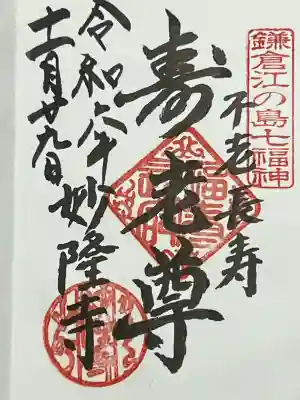 鎌倉江の島七福神
不老長寿
寿老尊
妙隆寺
令和六年
十一月廿九日